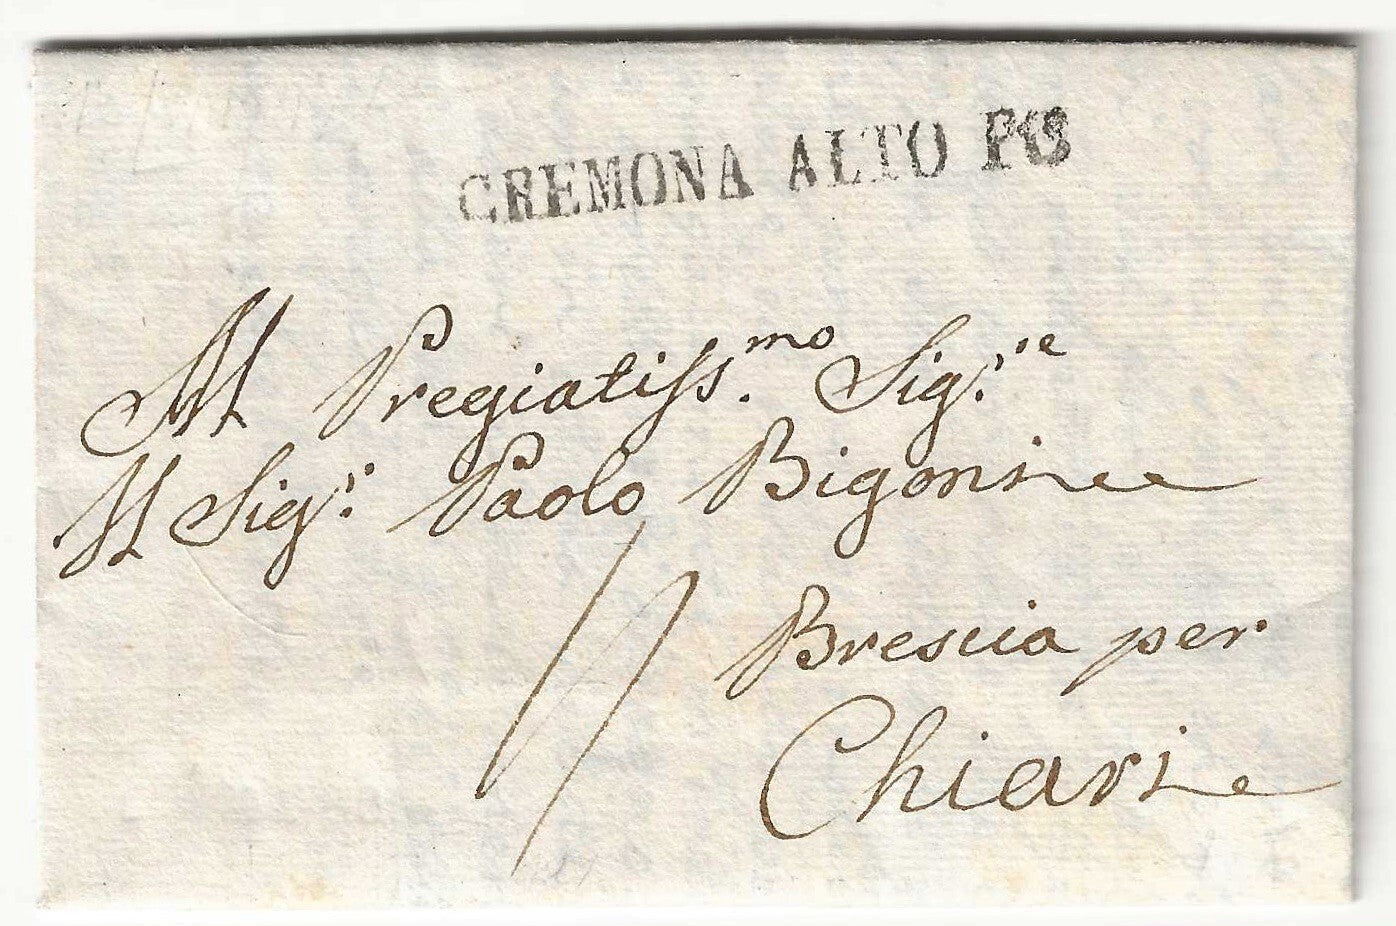 CREMONA ALTO PO
Al Pregiatiss.mo Sig.re
Il Sig.r Paolo Bigoni
Brescia per
Chiari